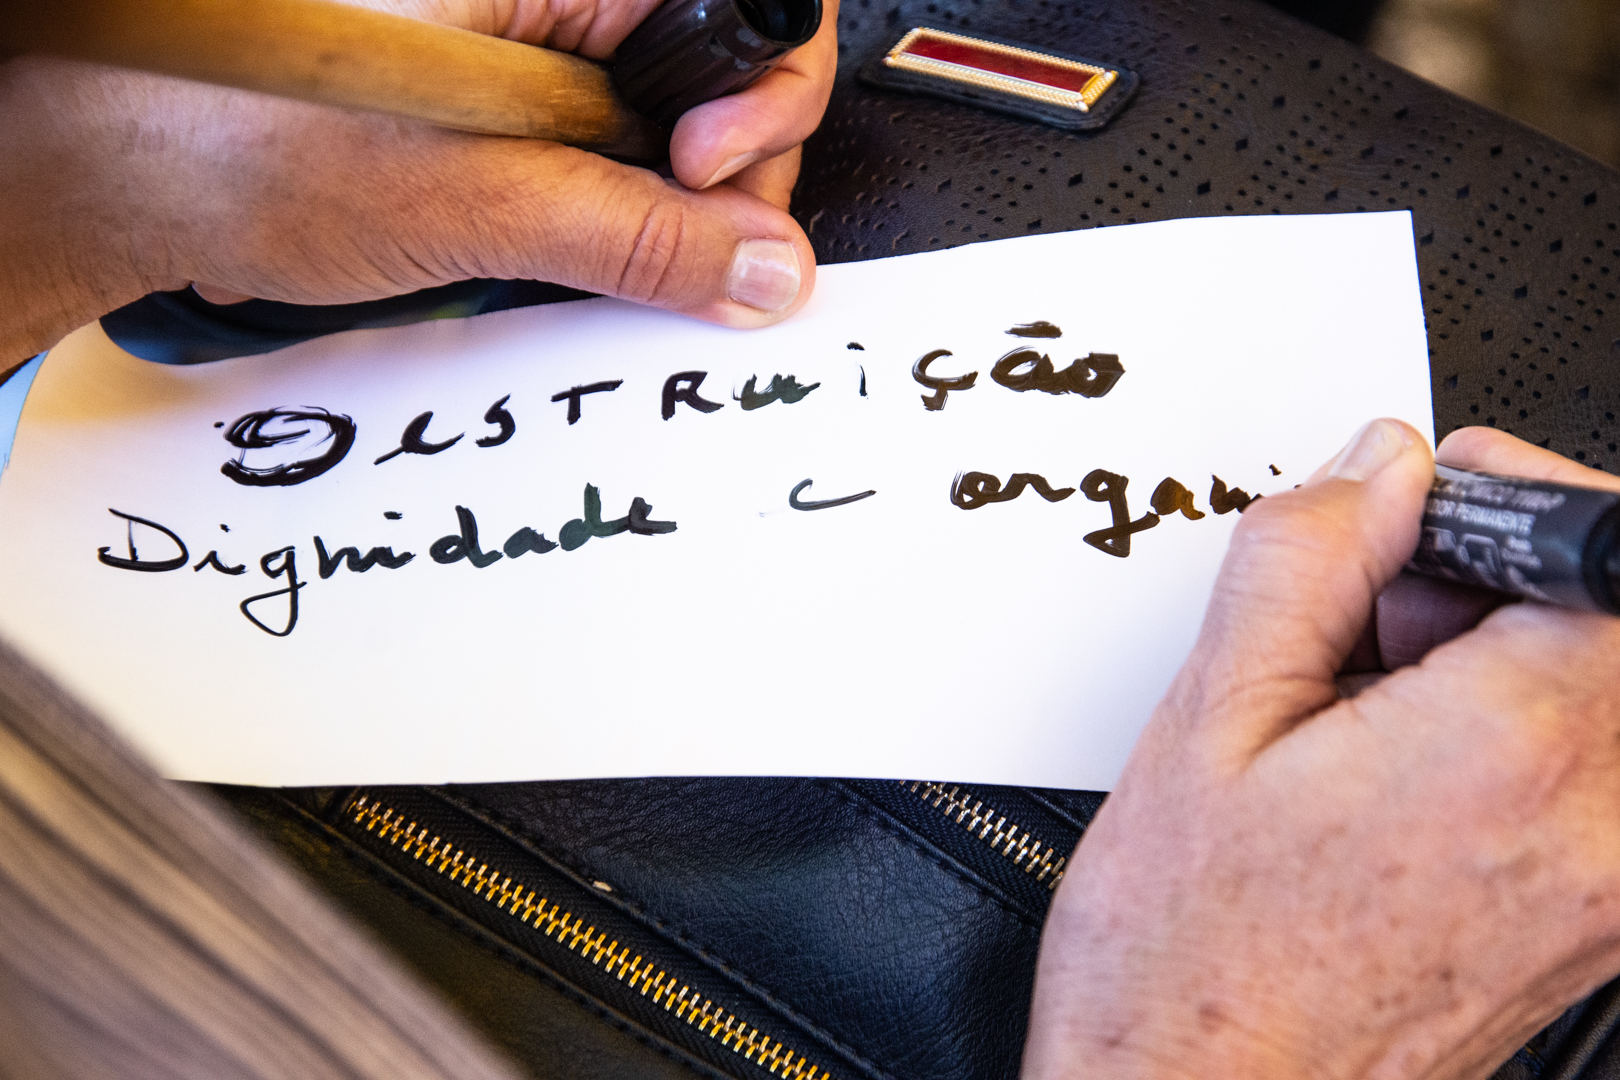 DesTRuição
Dignidade e organi
COR PERMANENTE